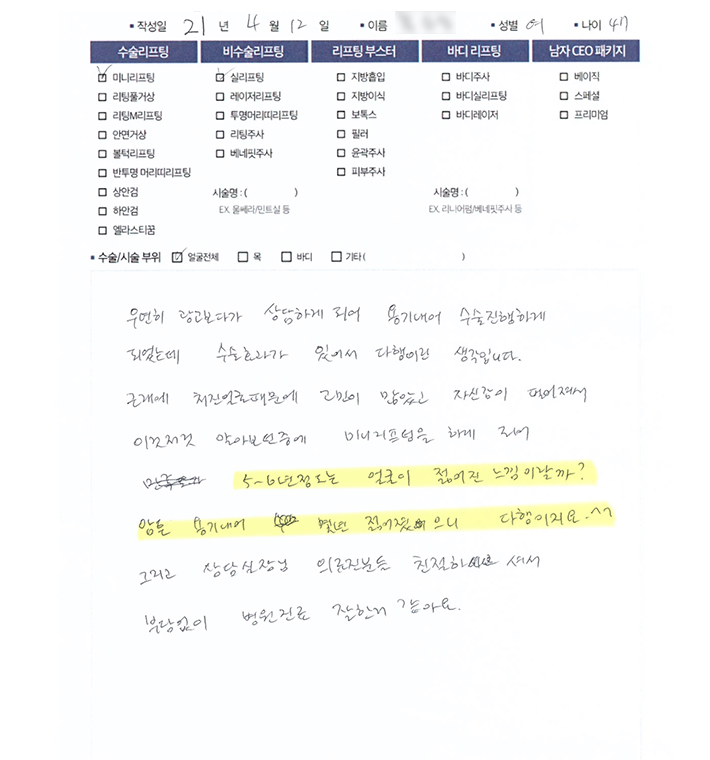 ▪ 작성일 21 년 4 월 12 일 ▪ 이름 ▪ 성별 여 ▪ 나이 47
수술리프팅 비수술리프팅 리프팅 부스터 바디 리프팅 남자 CEO 패키지
☑ 미니리프팅 ☑ 실리프팅 □ 지방흡입 □ 바디주사 □ 베이직
□ 리팅풀거상 □ 레이저리프팅 □ 지방이식 □ 바디실리프팅 □ 스페셜
□ 리팅M리프팅 □ 투명머리띠리프팅 □ 보톡스 □ 바디레이저 □ 프리미엄
□ 안면거상 □ 리팅주사 □ 필러
□ 볼턱리프팅 □ 베네핏주사 □ 윤곽주사
□ 반투명 머리띠리프팅 □ 피부주사
□ 상안검 시술명 : ( ) 시술명 : ( )
□ 하안검 EX. 울쎄라/민트실 등 EX. 리니어펌/베네핏주사 등
□ 엘라스티꿈
▪ 수술/시술 부위 ☑ 얼굴전체 □ 목 □ 바디 □ 기타 ( )
우연히 광고보다가 상담하게 되어 용기내어 수술진행하게
되었는데 수술효과가 있어서 다행이란 생각입니다.
근래에 처진얼굴때문에 고민이 많았고 자신감이 떨어져서
이것저것 알아보던중에 미니리프팅을 하게 되어
5~6년정도는 얼굴이 젊어진 느낌이랄까?
암튼 용기내어 몇년 젊어졌으니 다행이지요.^^
그리고 상담실장님 의료진분들 친절하셔서
부담없이 병원진료 잘한거 같아요.